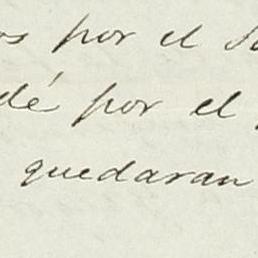 por el
dé por el
quedaran